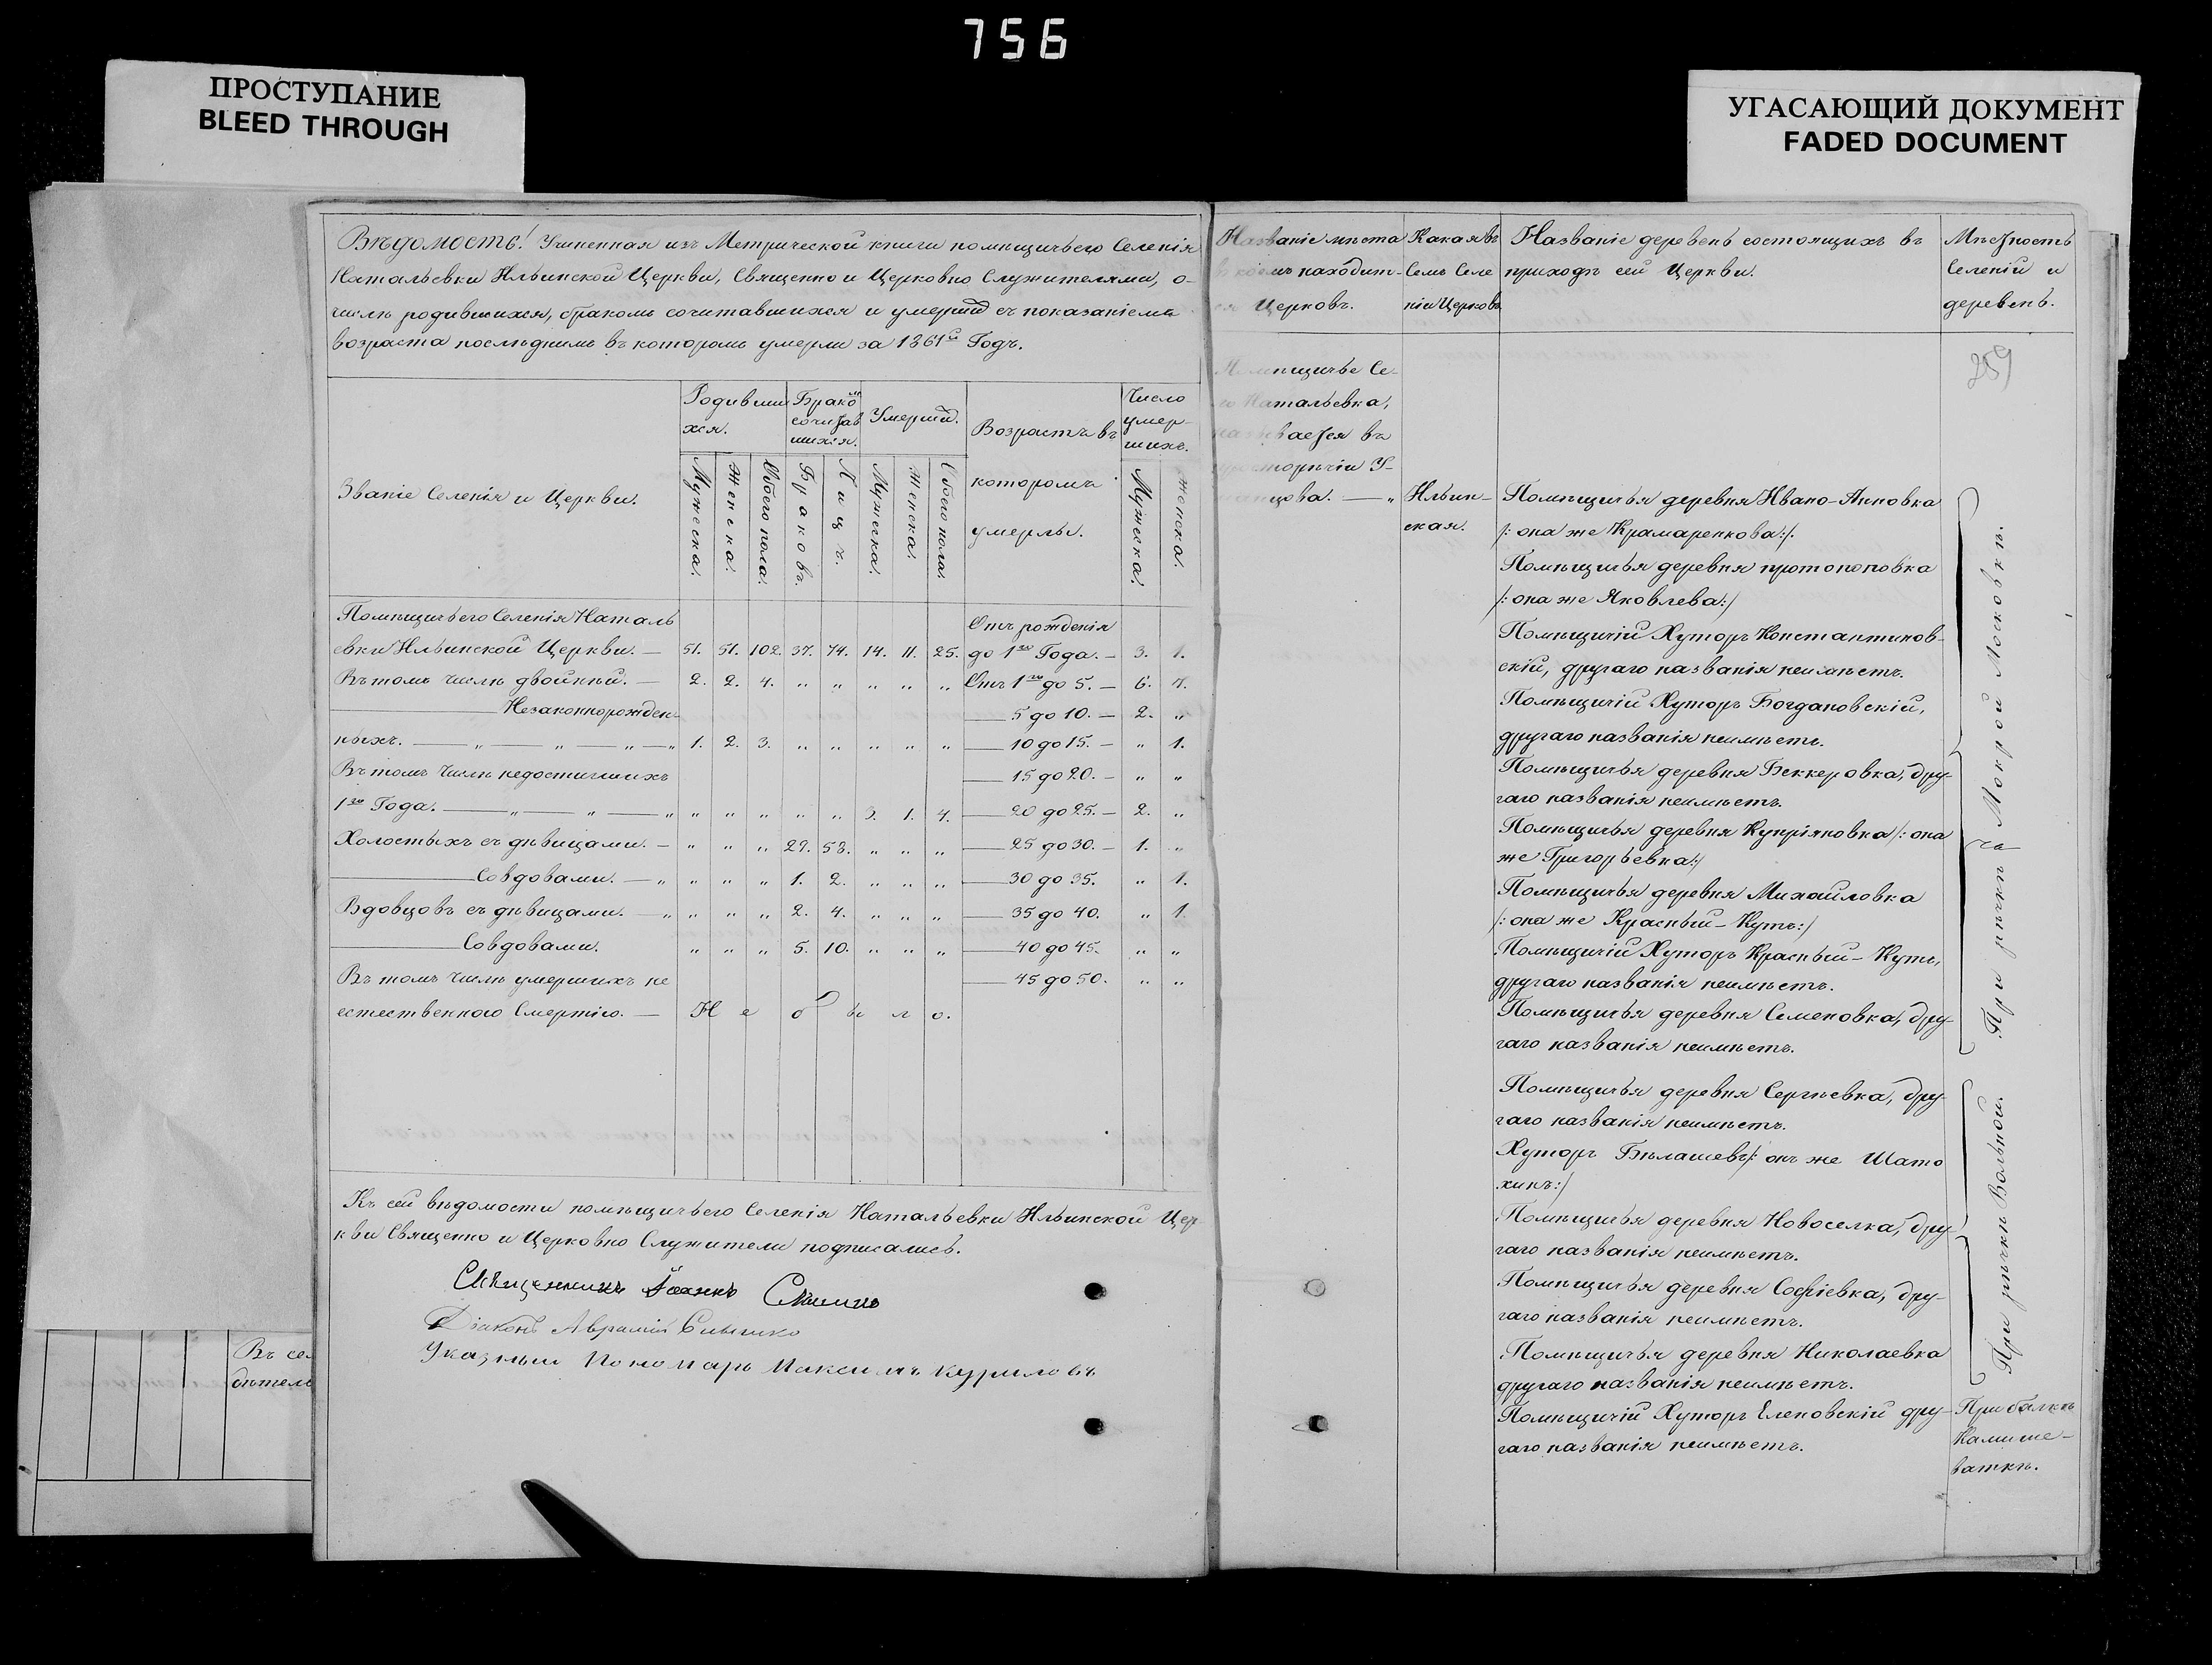 756
ПРОСТУПАНИЕ
BLEED THROUGH
УГАСАЮЩИЙ ДОКУМЕНТ
FADED DOCUMENT
Вѣдомость! Учиненная изъ Метрической книги помѣщичьего Селенія
Натальевки Ильинской Церкви, Священно и Церковно Служителями, о
числѣ родившихся, бракомъ сочитавшихся и умерших съ показаніемъ
возраста послѣднимъ въ которомъ умерли за 1861й Годъ.
Званіе Селенія и Церкви.
Родивши
хся.
Бракомъ
сочитав
шихся.
Умерших.
Возрастъ въ
которомъ
умерлы.
Число
умер-
шихъ.
Мужеска.
Женска.
Обоего пола.
Браковъ.
Лицъ.
Мужеска.
Женска.
Обоего пола.
Мужеска.
Женска.
Помѣщичьего Селенія Наталь Отъ рожденія
евки Ильинской Церкви. — 51. 51. 102. 37. 74. 14. 11. 25. до 1го Года. — 3. 1.
Въ томъ числѣ двойней. — 2. 2. 4. „ „ „ „ „ Отъ 1го до 5. — 6. 7.
— Незаконнорожден- — 5 до 10. — 2. „
ныхъ. — „ — „ — „ — „ 1. 2. 3. „ „ „ „ „ — 10 до 15. — „ 1.
Въ томъ числѣ недостигшихъ — 15 до 20. — „ „
1го Года. — „ — „ — „ „ „ „ „ „ 3. 1. 4. — 20 до 25. — 2. „
Холостыхъ съ дѣвицами. — „ „ „ 29. 58. „ „ „ — 25 до 30. — 1. „
— Совдовами. — „ „ „ „ 1. 2. „ „ „ — 30 до 35. „ 1.
Вдовцовъ съ дѣвицами. — „ „ „ „ 2. 4. „ „ „ — 35 до 40. „ 1.
— Совдовами. „ „ „ 5. 10. „ „ „ — 40 до 45. „ „
Въ томъ числѣ умершихъ не — 45 до 50. „ „
естественного Смертію. — Не было.
Къ сей вѣдомости помѣщичьего Селенія Натальевки Ильинской Цер
кви Священно и Церковно Служители подписались.
Священникъ Іоаннъ
Діаконъ Аврамій
Указный Пономарь Максимъ Куриловъ
Въ се
дѣтель
Названіе мѣста
въ коемъ находит-
ся Церковъ.
Какая въ
Семъ Селе
ніи Церковъ
Названіе деревень состоящихъ въ
приходѣ сей Церкви.
Мѣстность
Селеній и
деревень.
259
Помѣщичье Се-
ло Натальевка,
называется въ
просторѣчіи
Ильин-
ская.
Помѣщичья деревня Ивано-Анновка
/: она же Крамаренкова :/.
Помѣщичья деревня протопоповка
/: она же Яковлева :/
Помѣщичій Хуторъ Константинов-
скій, другаго названія неимѣетъ.
Помѣщичій Хуторъ Богдановскій,
другаго названія неимѣетъ.
Помѣщичья деревня Беккеровка, дру-
гаго названія неимѣетъ.
Помѣщичья деревня Купріяновка /: она
же Григорьевка :/
Помѣщичья деревня Михайловка
/: она же Красный-Кутъ :/
Помѣщичій Хуторъ Красный-Кутъ,
другаго названія неимѣетъ.
Помѣщичья деревня Семеновка, дру-
гаго названія неимѣетъ.
При рѣчкѣ Мокрой Московкѣ.
Помѣщичья деревня Сергѣевка, дру-
гаго названія неимѣетъ.
Хуторъ Бѣлашевъ /: онъ же Шато
хинъ :/
Помѣщичья деревня Новоселка, дру-
гаго названія неимѣетъ.
Помѣщичья деревня Софіевка, дру-
гаго названія неимѣетъ.
Помѣщичья деревня Николаевка
другаго названія неимѣетъ.
При рѣчки Вольной.
Помѣщичій Хуторъ Еленовскій дру-
гаго названія неимѣетъ.
При балкѣ
Камыше-
ваткѣ.